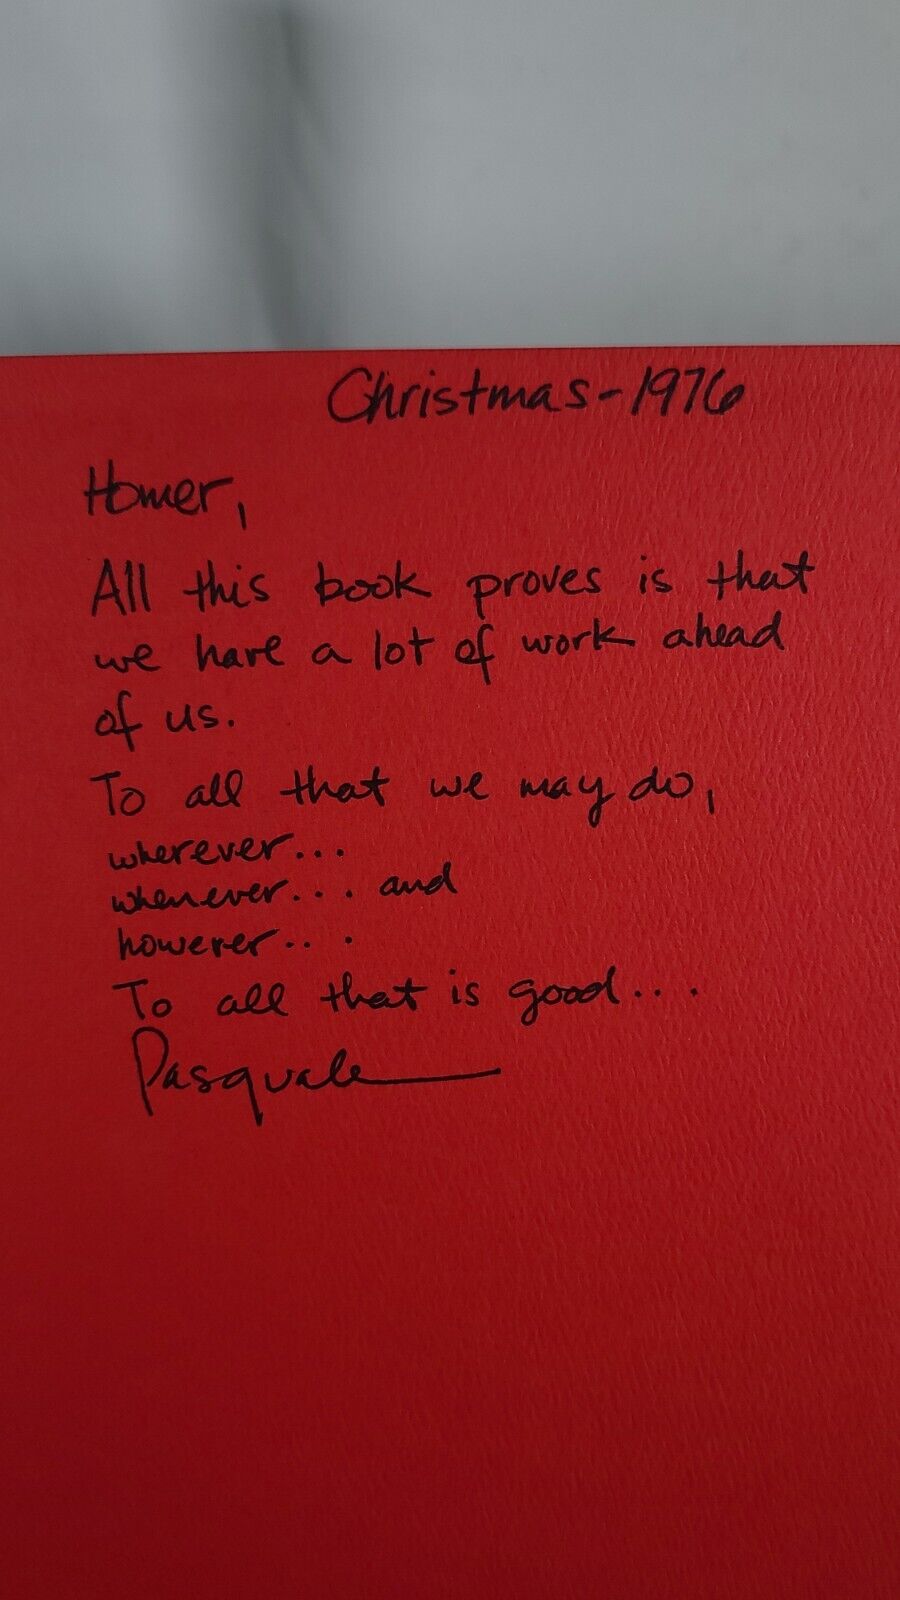 Christmas-1976
Homer,
All this book proves is that
we have a lot of work ahead
of us.
To all that we may do,
wherever...
whenever... and
however...
To all that is good...
Pasquale